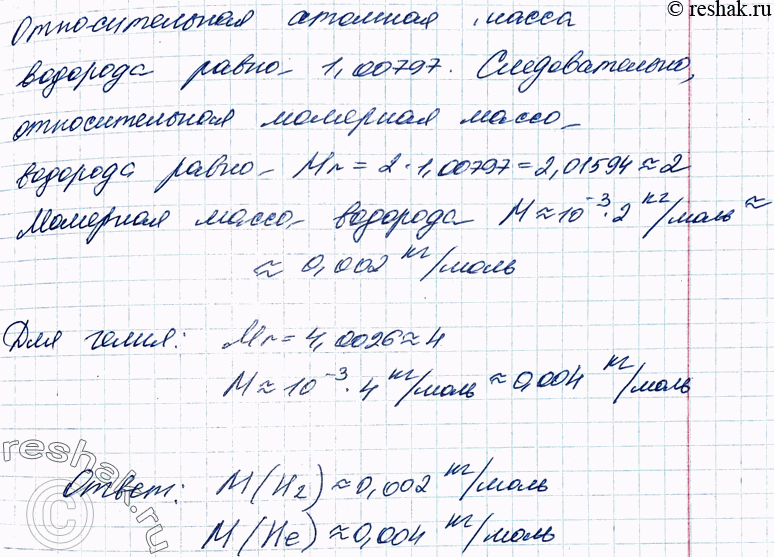 © reshak.ru
Относительная атомная масса
водорода равна 1,00797. Следовательно,
относительная молярная масса
водорода равна Mr = 2·1,00797 = 2,01594 ≈ 2
Молярная масса водорода M ≈ 10⁻³·2 кг/моль ≈
≈ 0,002 кг/моль
Для гелия: Mr = 4,0026 ≈ 4
M ≈ 10⁻³·4 кг/моль ≈ 0,004 кг/моль
Ответ: M(H₂) ≈ 0,002 кг/моль
M(He) ≈ 0,004 кг/моль
reshak.ru ©